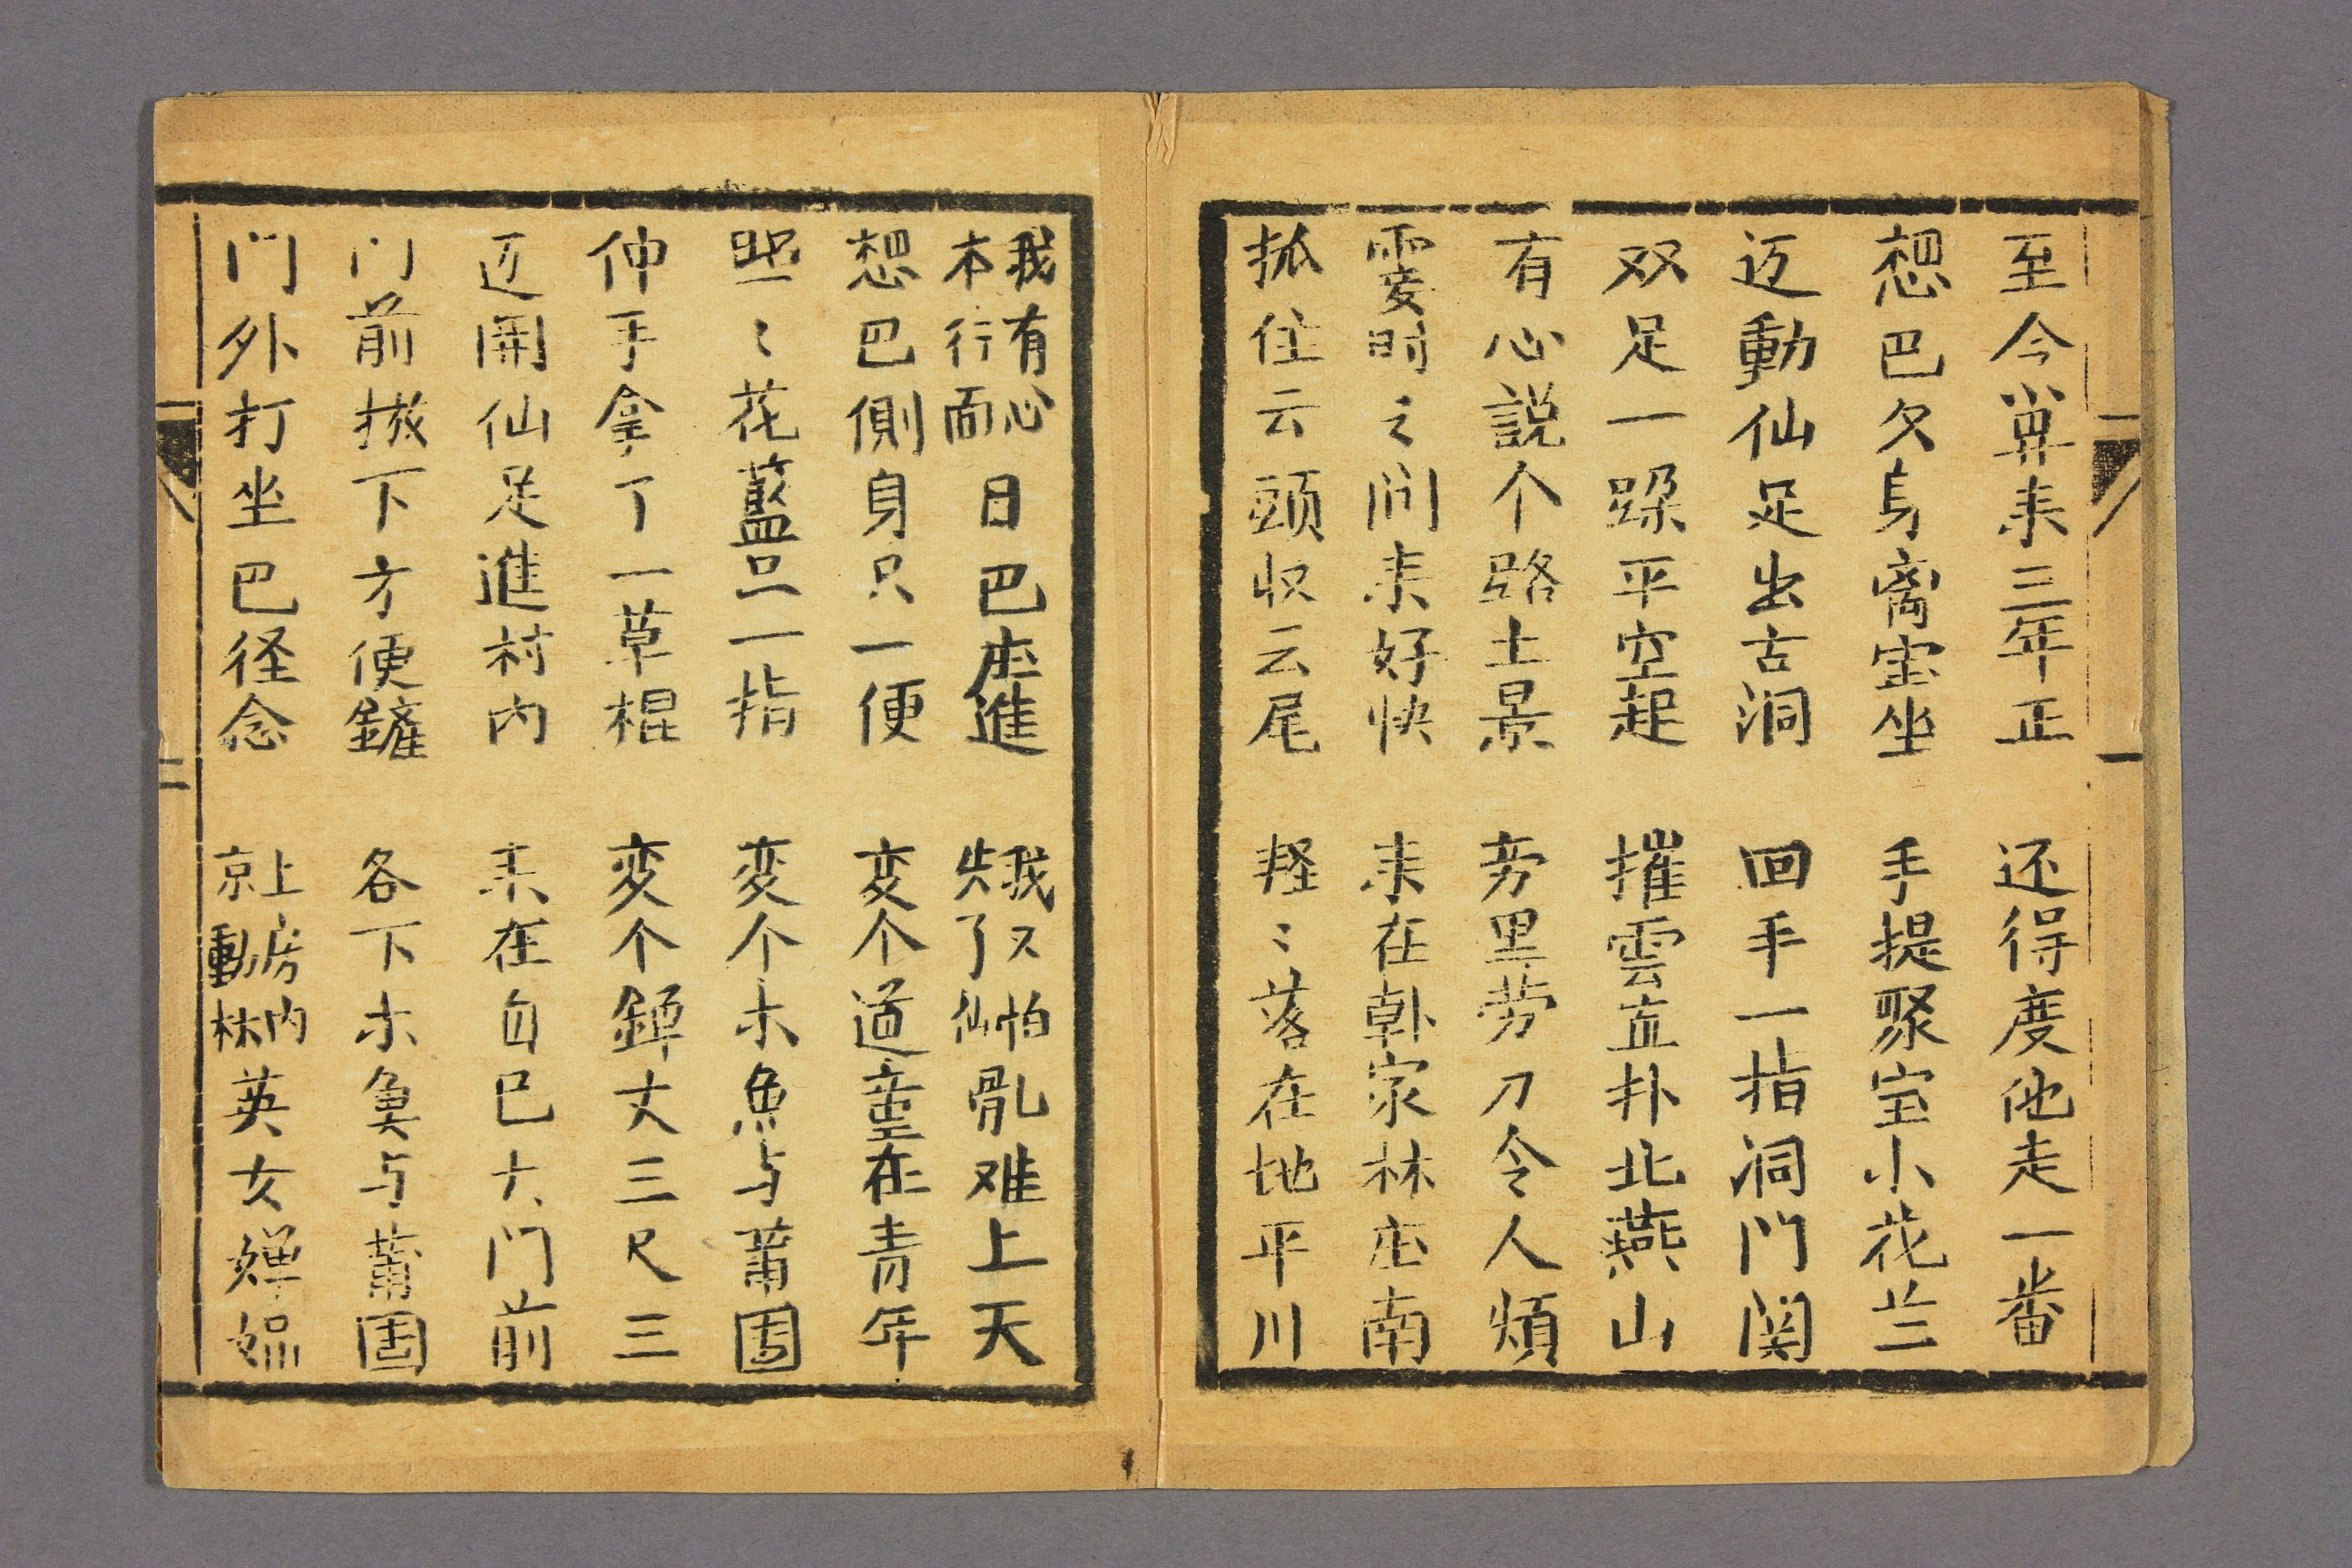 至今算来三年正 还得度他走一番
想巴欠身离宝坐 手提聚宝小花兰
迈動仙足出古洞 回手一指洞门関
双足一跺平空起 摧雲直扑北燕山
有心説个路土景 旁里劳刀令人煩
霎时之间来好快 来在韩家林庄南
抓住云頭收云尾 轻〻落在地平川
我有心本行面目巴庄進 我又怕失了仙骨乱难上天
想巴侧身只一便 变个道童在青年
照〻花藍只一指 变个木魚与蒲團
伸手拿了一草棍 変个錞丈三尺三
迈開仙足進村内 来在自己大门前
门前𢫬下方便鏟 各下木魚与蒲團
门外打坐巴径念 上房内京動林英女婵娟
二